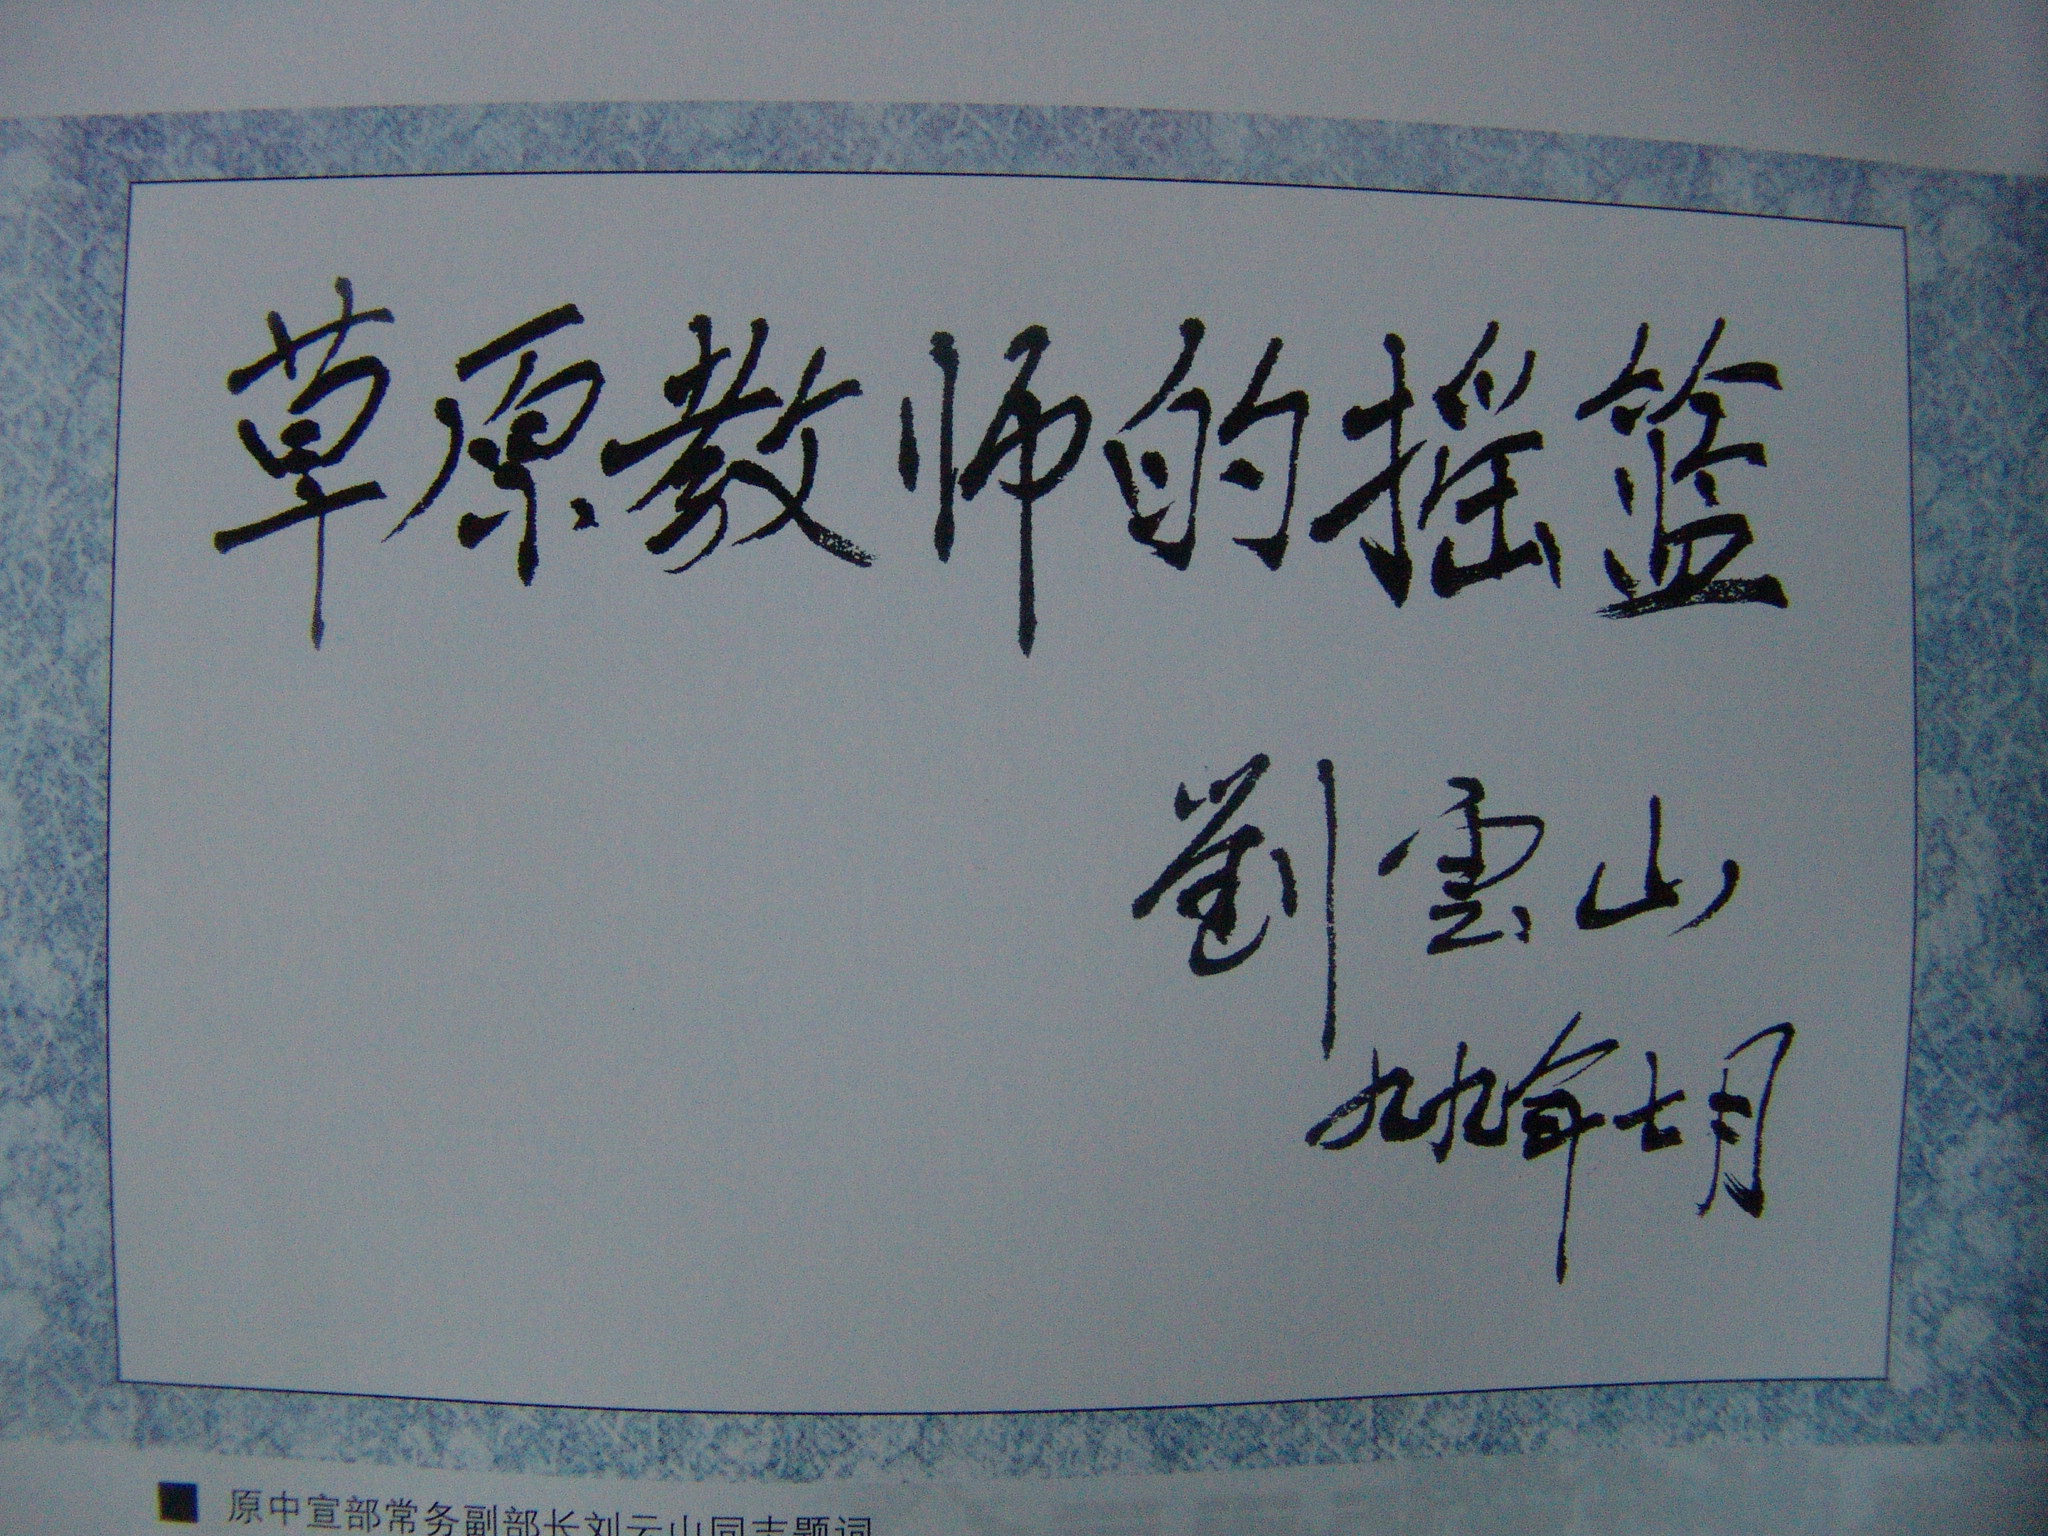 草原教师的摇篮
劉雲山
九九年七月
■ 原中宣部常务副部长刘云山同志题词